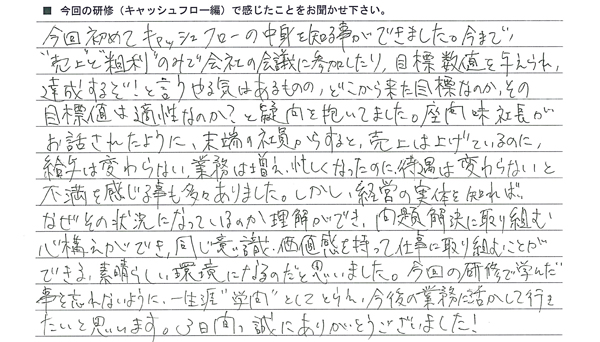 ■ 今回の研修（キャッシュフロー編）で感じたことをお聞かせ下さい。
今回初めてキャッシュフローの中身を知る事ができました。今まで
"売上"と"粗利"のみで会社の会議に参加したり、目標数値を与えられ、
達成するぞ!と言うやる気はあるものの、どこから来た目標なのか、その
目標値は適性なのか?と疑問を抱いてました。座間味社長が
お話されたように、末端の社員からすると、売上は上げているのに、
給与は変わらない、業務は増え、忙しくなったのに、待遇は変わらないと
不満を感じる事も多々ありました。しかし、経営の実体を知れば、
なぜその状況になっているのか理解ができ、問題解決に取り組む
心構えができ、同じ意識・価値感を持って仕事に取り組むことが
できる、素晴らしい環境になるのだと思いました。今回の研修で学んだ
事を忘れないように、一生涯"学問"としてとらえ、今後の業務に活かして行き
たいと思います。3日間、誠にありがとうございました!